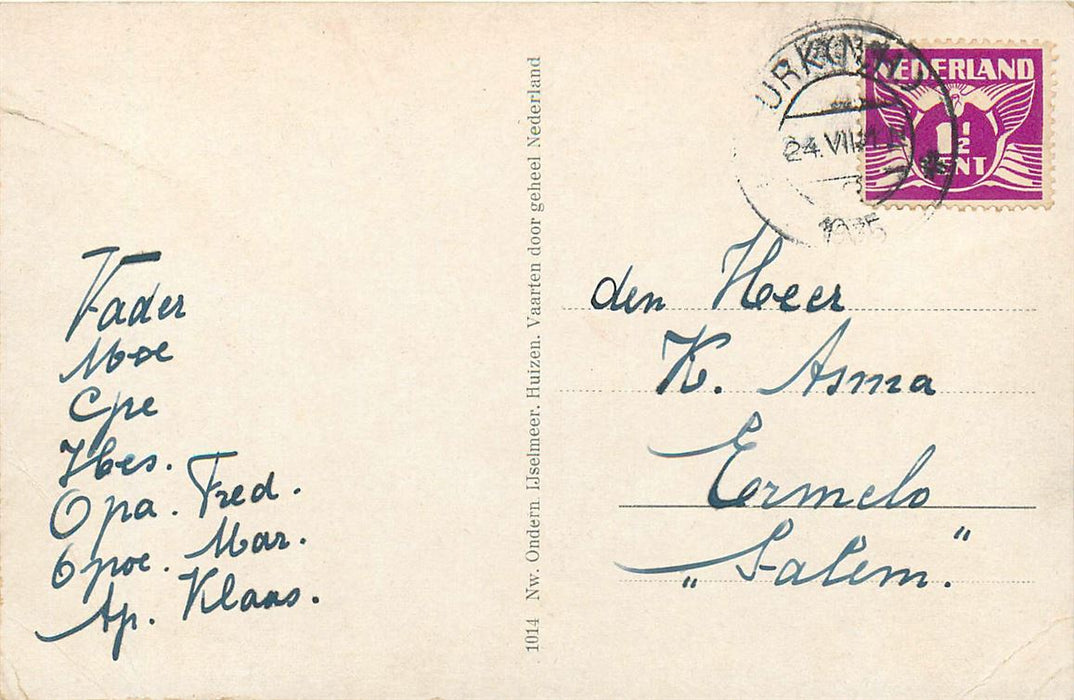 Vader
Moe
Cpe
Hes.
Opa. Fred.
Opoe. Mar.
Ap. Klaas.
1014 Nw. Ondern IJselmeer. Huizen. Vaarten door geheel Nederland
URK (N.H.)
24.VII
1935
NEDERLAND
1½
CENT
den Heer
K. Asma
Ermelo
„Salem.”